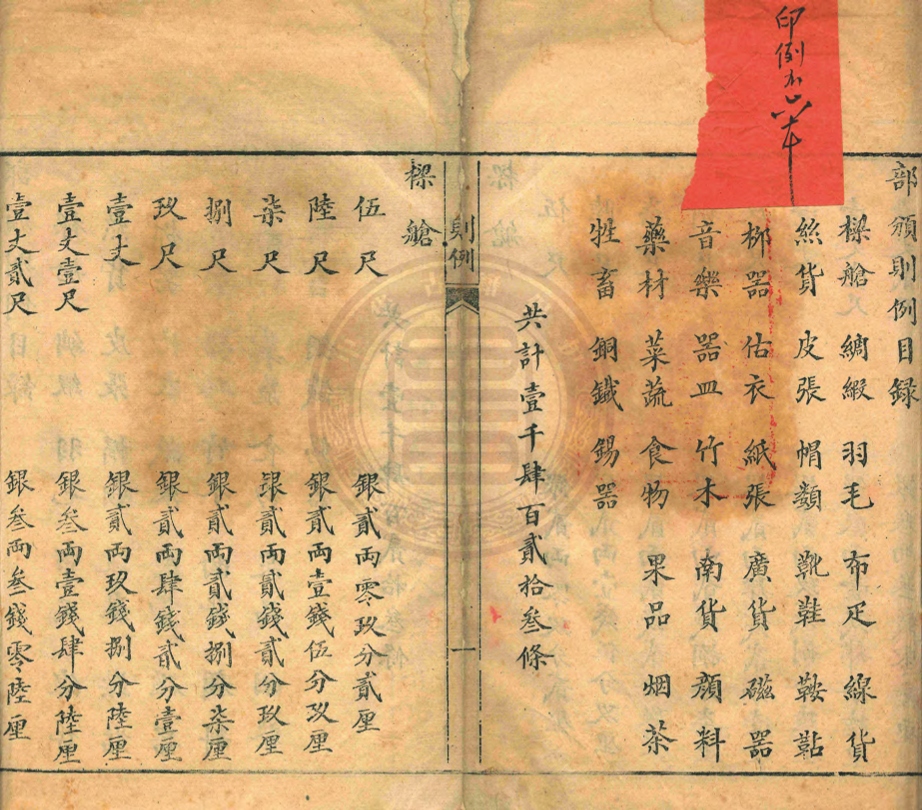 印例
部頒則例目録
樑艙 綢緞 羽毛 布疋 線貨
絲貨 皮張 帽類 靴鞋 鞍韂
梛器 估衣 紙張 廣貨 磁器
音樂 器皿 竹木 南貨 顔料
藥材 菜蔬 食物 果品 烟茶
牲畜 銅鐵 錫器
共計壹千肆百貳拾叄條
則例
一
樑艙
伍尺 銀貳兩零玖分貳厘
陸尺 銀貳兩壹錢伍分玖厘
柒尺 銀貳兩貳錢貳分玖厘
捌尺 銀貳兩貳錢捌分柒厘
玖尺 銀貳兩肆錢貳分壹厘
壹丈 銀貳兩玖錢捌分陸厘
壹丈壹尺 銀叄兩壹錢肆分陸厘
壹丈貳尺 銀叄兩叄錢零陸厘